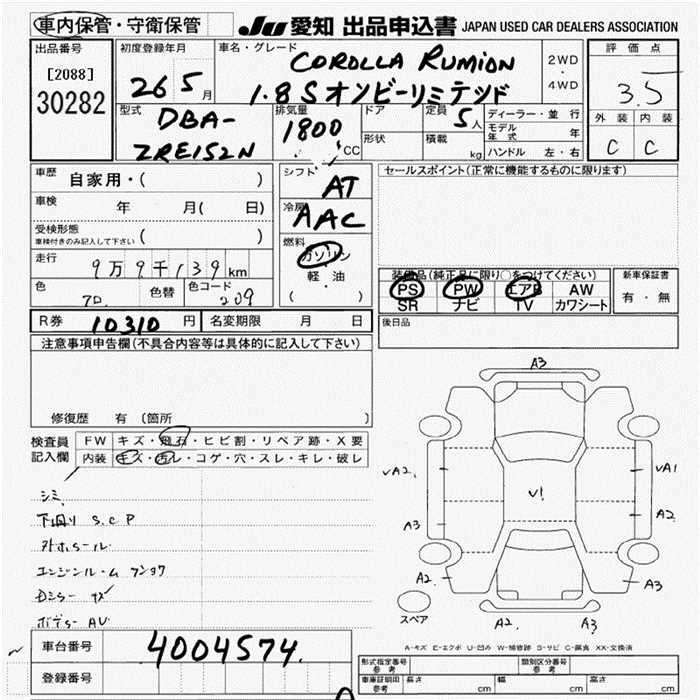 車内保管・守衛保管 JU 愛知 出品申込書 JAPAN USED CAR DEALERS ASSOCIATION
出品番号 初度登録年月 車名・グレード COROLLA RUMION 2WD・4WD 評価点
[2088] 30282 26 5月 1.8S オンビーリミテッド 3.5
型式 DBA-ZRE152N 排気量 1800 CC ドア 定員 5人 ディーラー・並行 外装 内装
形状 積載 kg モデル年式 年 C C
ハンドル 左・右
車歴 自家用・( ) シフト AT セールスポイント(正常に機能するものに限ります)
車検 年 月( 日) 冷房 AAC
受検形態 車検付きのみ記入して下さい ( )
走行 9万9千139km 燃料 ガソリン・軽油 ( ・ )
装備品(純正品に限り○をつけてください) 新車保証書
色 色替 色コード 209 PS PW エアB AW 有・無
SR ナビ TV カワシート
R券 10310円 名変期限 月 日 後日品
注意事項申告欄(不具合内容等は具体的に記入して下さい)
修復歴 有 (箇所
検査員記入欄 FW キズ・飛石・ヒビ割・リペア跡・X要
内装 キズ・汚レ・コゲ・穴・スレ・キレ・破レ
シミ
下回り S.C P
外ホール
エンジンルーム
Dミラー キズ
ボデー AU
A3
VA2. V1 VA1
A3 A2
A2. A3
スペア A2 A3
A-キズ E-エクボ U-凹み W-補修跡 S-サビ C-腐食 XX-交換済
車台番号 4004574
登録番号
形式指定番号 参考 類別区分番号 参考
車庫証明用 参考 長さ cm 幅 cm 高さ cm